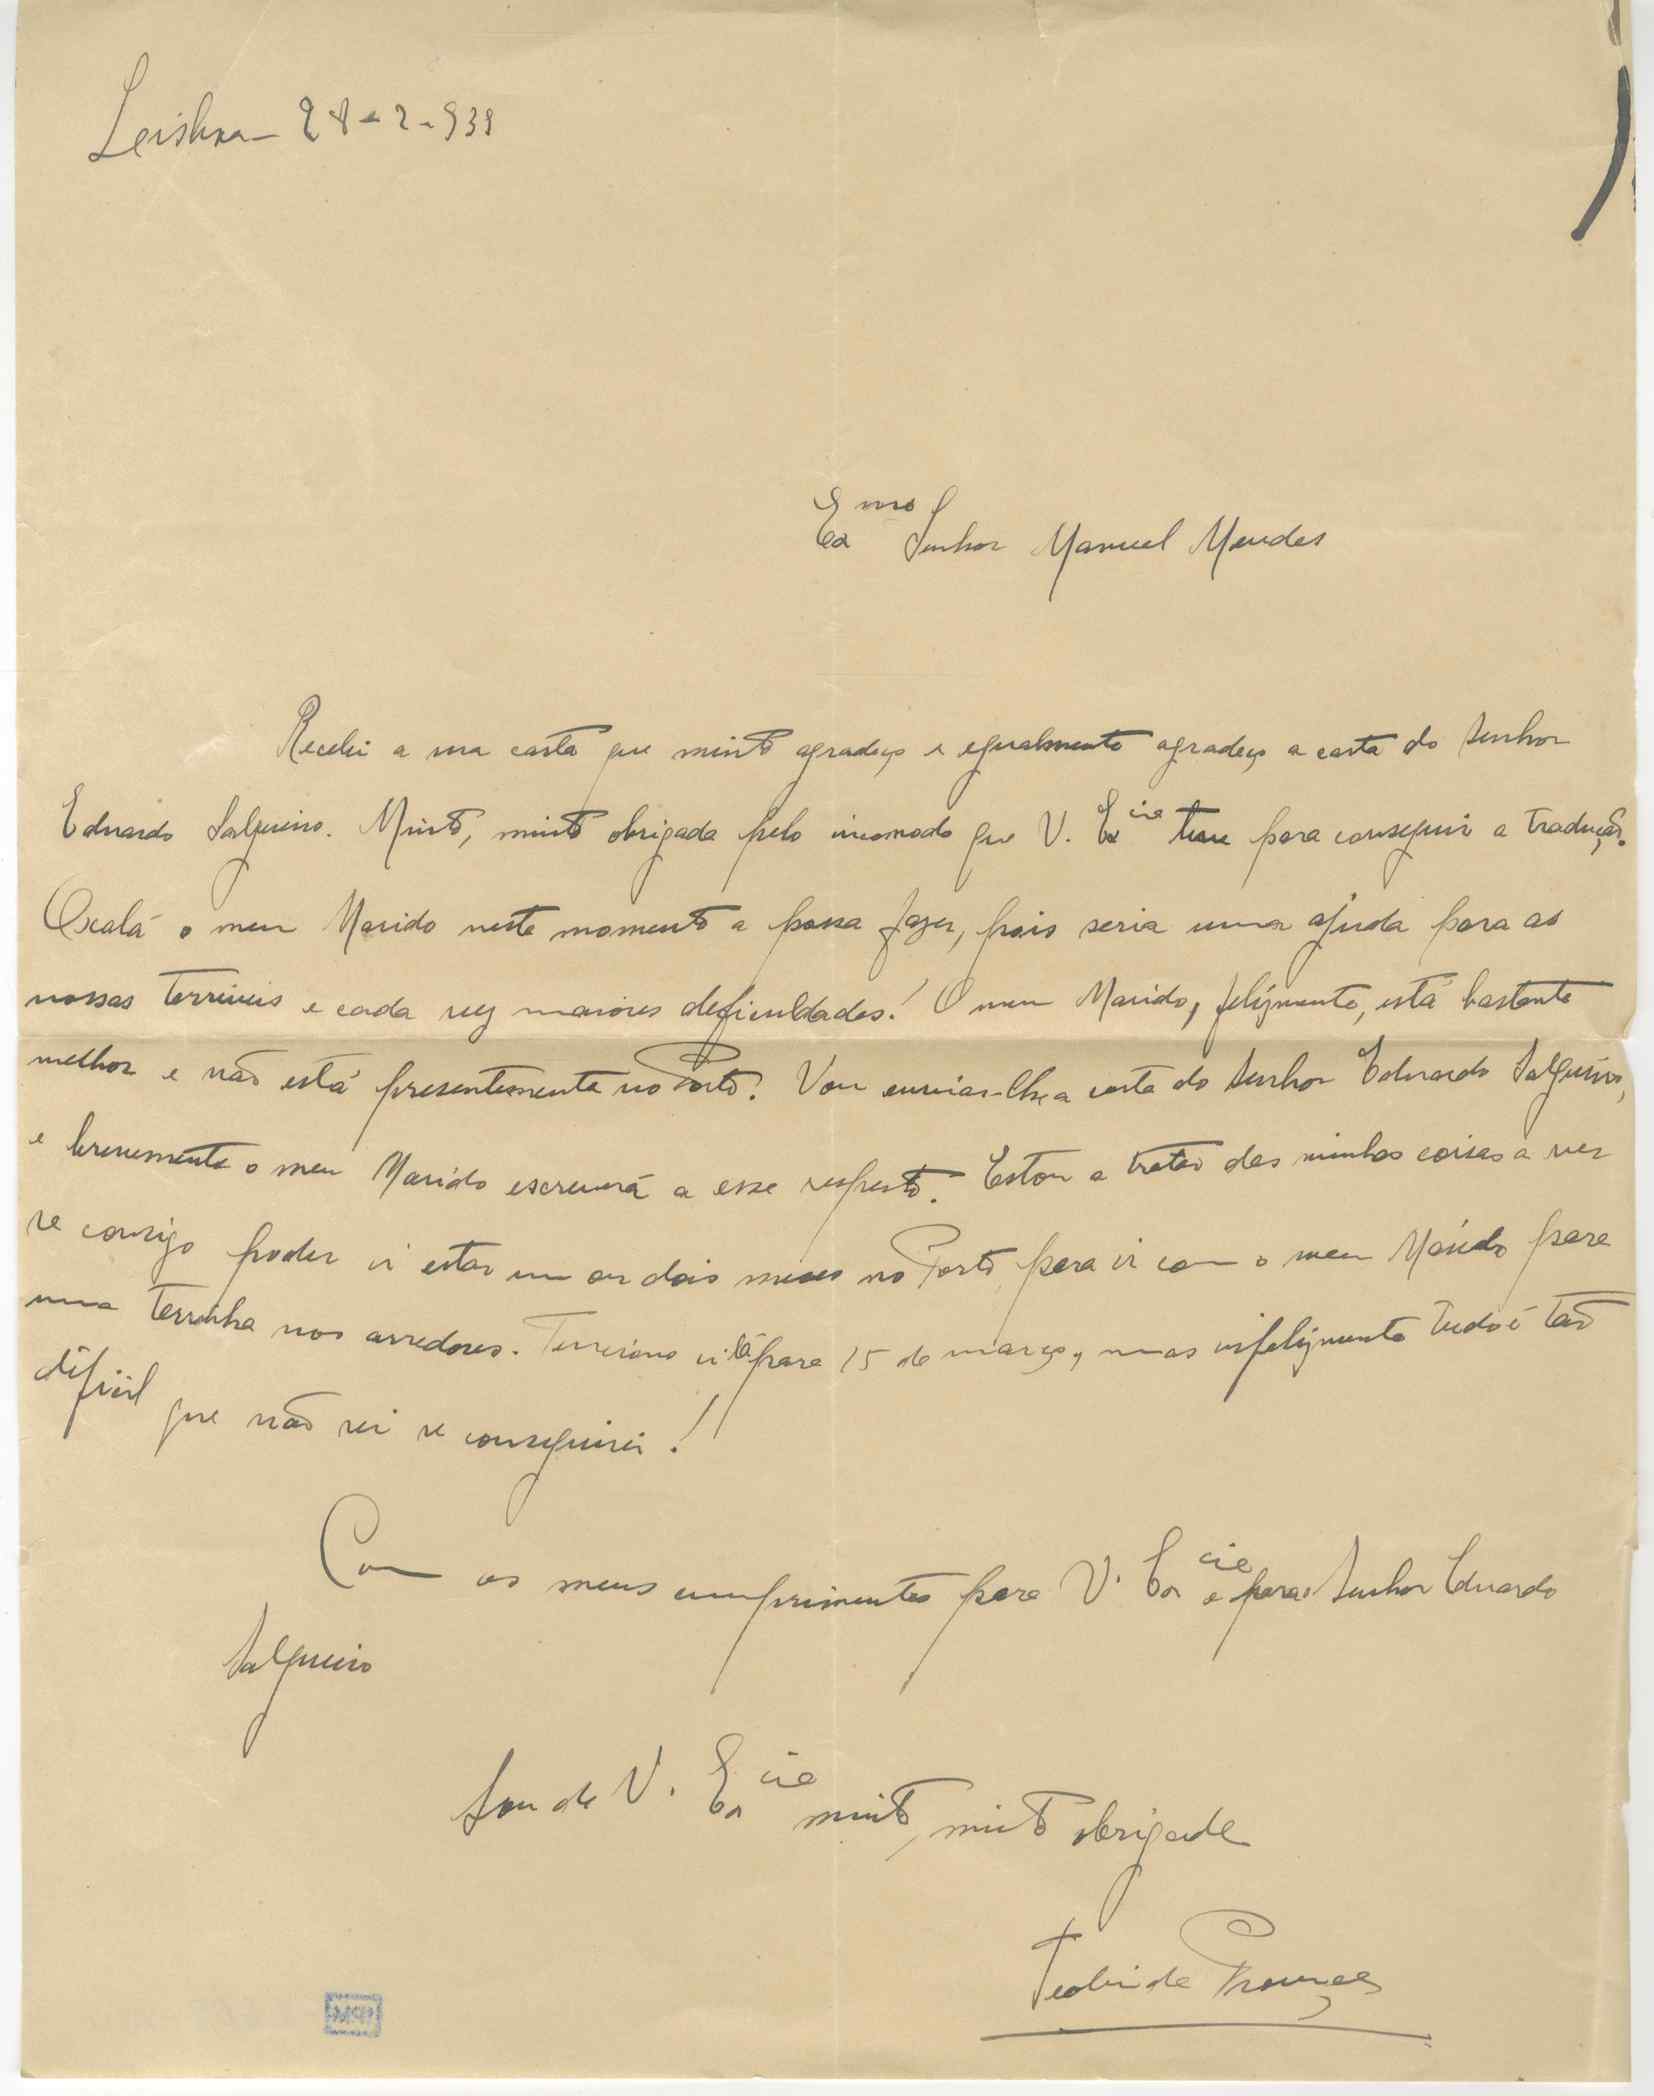 Lisboa 28-2-939
Exmo Senhor Manuel Mendes
Recebi a sua carta que muito agradeço e egualmente agradeço a carta do Senhor
Eduardo Salgueiro. Muito, muito obrigada pelo incomodo que V. Excia teve para conseguir a tradução.
Oxalá o meu Marido neste momento a possa fazer, pois seria uma ajuda para as
nossas terriveis e cada vez maiores deficuldades! O meu Marido, felizmente, está bastante
melhor e não está presentemente no Porto. Vou enviar-lhe a carta do Senhor Eduardo Salgueiro,
e brevemente o meu Marido escreverá a esse respeito. Estou a tratar das minhas coisas a ver
se consigo poder ir estar um ou dois meses no Porto, para ir com o meu Marido para
uma terrinha nos arredores. ir lá para 15 de março, mas infelizmente tudo é tão
dificil que não sei se conseguirei!
Com os meus cumprimentos para V. Excia e para o Senhor Eduardo
Salgueiro
Sou de V. Excia muito, muito obrigada